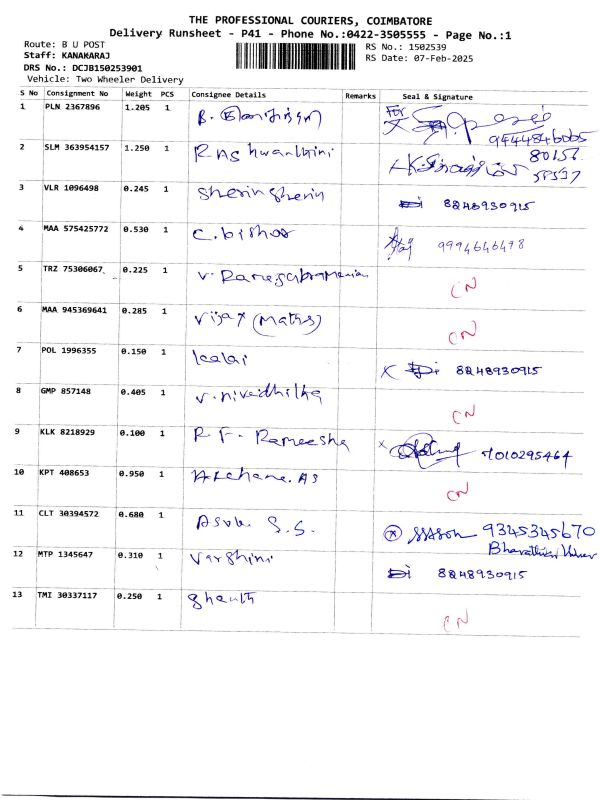 THE PROFESSIONAL COURIERS, COIMBATORE
Delivery Runsheet - P41 - Phone No.:0422-3505555 - Page No.:1
Route: B U POST
RS No.: 1502539
Staff: KANAKARAJ
RS Date: 07-Feb-2025
DRS No.: DCJB150253901
Vehicle: Two Wheeler Delivery
S No Consignment No Weight PCS Consignee Details Remarks Seal & Signature
1 PLN 2367896 1.205 1 B. For 9444846005
2 SLM 363954157 1.250 1 R. Ashwanthini 80156
3 VLR 1096498 0.245 1 Sherin Sherin 8248930915
4 MAA 575425772 0.530 1 C. bishor 9994646478
5 TRZ 75306067 0.225 1 V. Ramasubramanian CN
6 MAA 945369641 0.285 1 Vijay (Maths) CN
7 POL 1996355 0.150 1 kalai X 8248930915
8 GMP 857148 0.405 1 V. nivedhitha CN
9 KLK 8218929 0.100 1 R. F. Rameesha X 7010295464
10 KPT 408653 0.950 1 Archana. AS CN
11 CLT 30394572 0.680 1 S.S. 9345345670
Bharathiar
12 MTP 1345647 0.310 1 Varshini 8248930915
13 TMI 30337117 0.250 1 CN